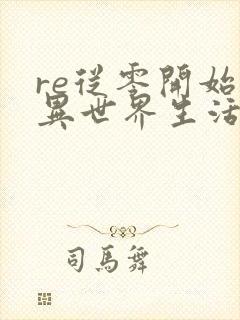 re從零開始
異世界生活
司馬舞